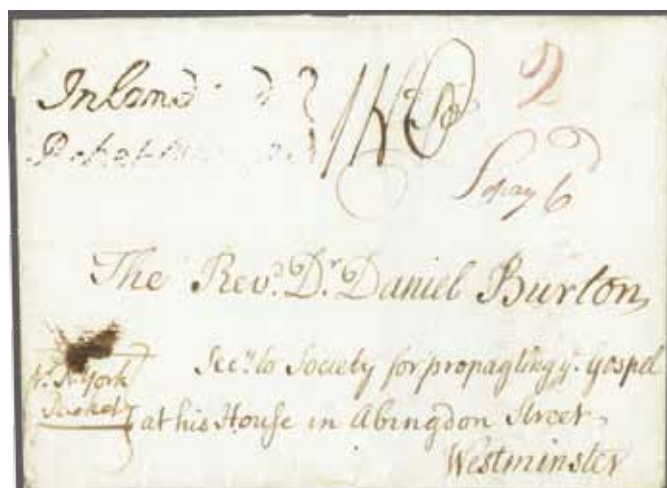 Inland
2
pay 6
The Revd. Dr. Daniel Burton,
Secy. to Society for propagting ye. Gospel
N. York
at his House in Abingdon Street
Westminster